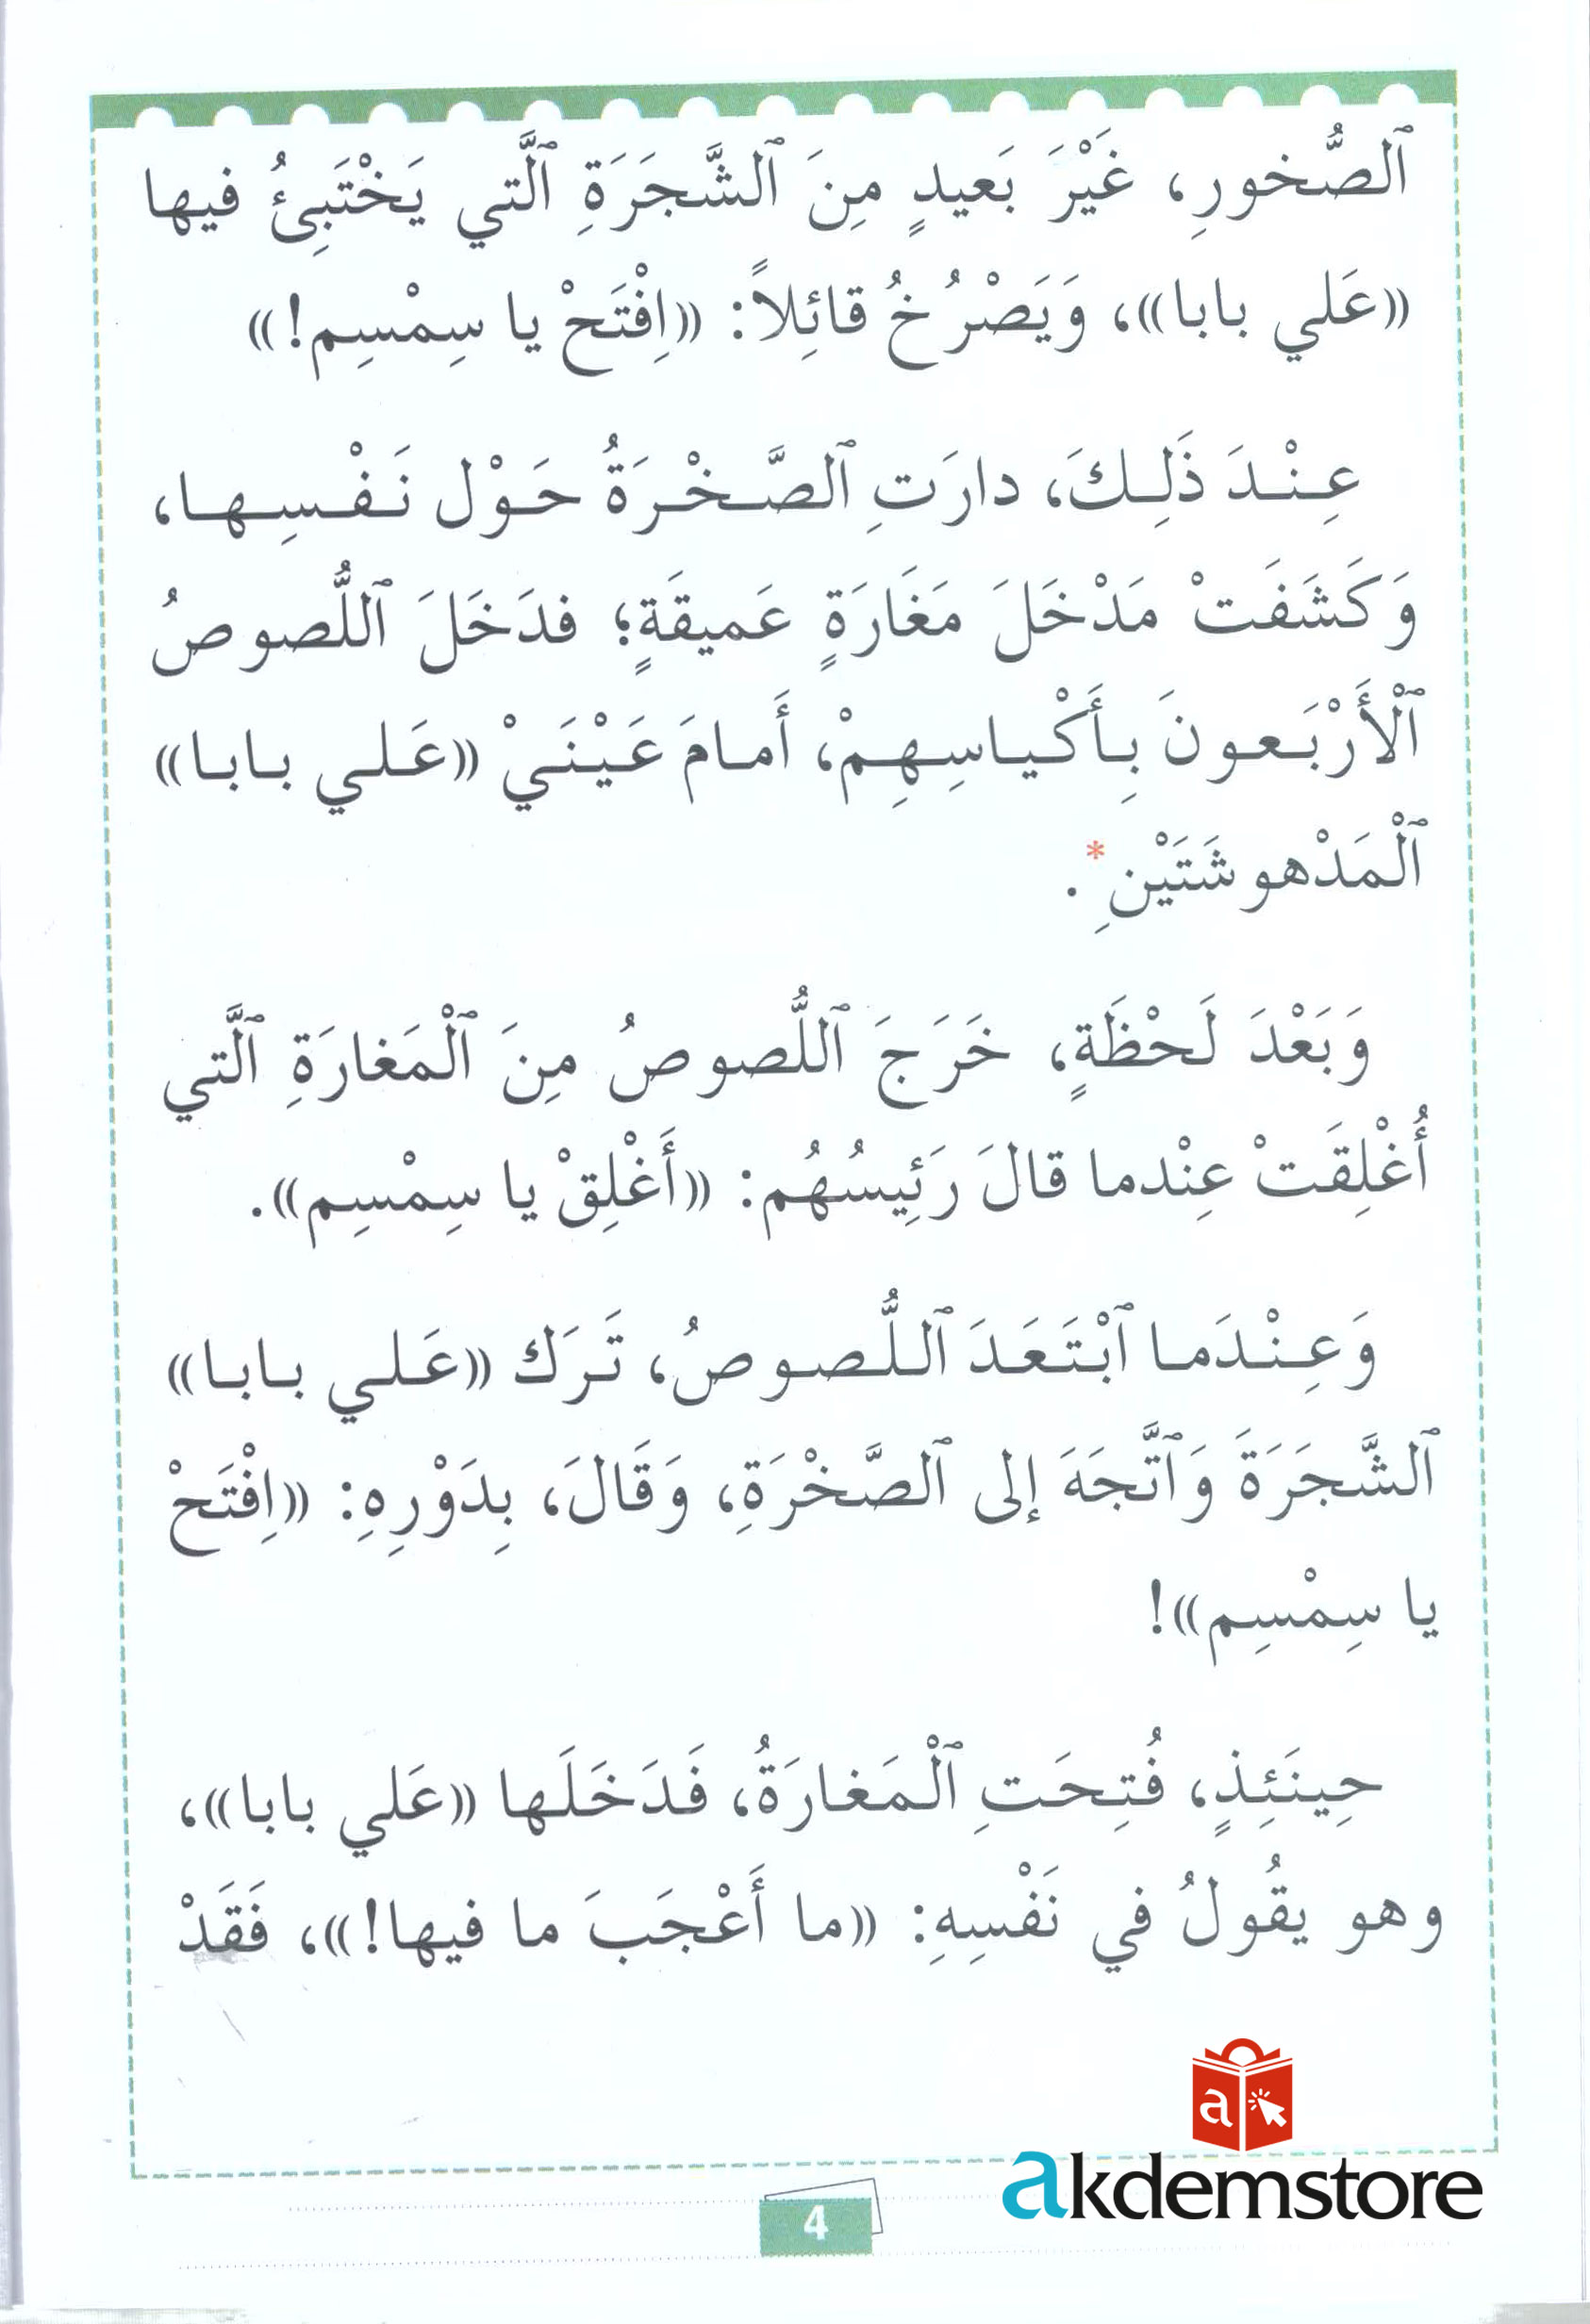 ٱلصُّخورِ، غَيْرَ بَعيدٍ مِنَ ٱلشَّجَرَةِ ٱلَّتي يَخْتَبِئُ فيها
«عَلي بابا»، وَيَصْرُخُ قائِلاً: «اِفْتَحْ يا سِمْسِم!»
عِنْدَ ذَلِكَ، دارَتِ ٱلصَّخْرَةُ حَوْل نَفْسِها،
وَكَشَفَتْ مَدْخَلَ مَغَارَةٍ عَميقَةٍ؛ فدَخَلَ ٱللُّصوصُ
ٱلْأَرْبَعونَ بِأَكْياسِهِمْ، أَمامَ عَيْنَيْ «عَلي بابا»
ٱلْمَدْهوشَتَيْنِ*.
وَبَعْدَ لَحْظَةٍ، خَرَجَ ٱللُّصوصُ مِنَ ٱلْمَغارَةِ ٱلَّتي
أُغْلِقَتْ عِنْدما قالَ رَئِيسُهُم: «أَغْلِقْ يا سِمْسِم».
وَعِنْدَما ٱبْتَعَدَ ٱللُّصوصُ، تَرَك «عَلي بابا»
ٱلشَّجَرَةَ وَٱتَّجَهَ إلى ٱلصَّخْرَةِ، وَقَالَ، بِدَوْرِهِ: «اِفْتَحْ
يا سِمْسِم»!
حِينَئِذٍ، فُتِحَتِ ٱلْمَغارَةُ، فَدَخَلَها «عَلي بابا»،
وهو يقُولُ في نَفْسِهِ: «ما أَعْجَبَ ما فيها!»، فَقَدْ
a
akdemstore
4